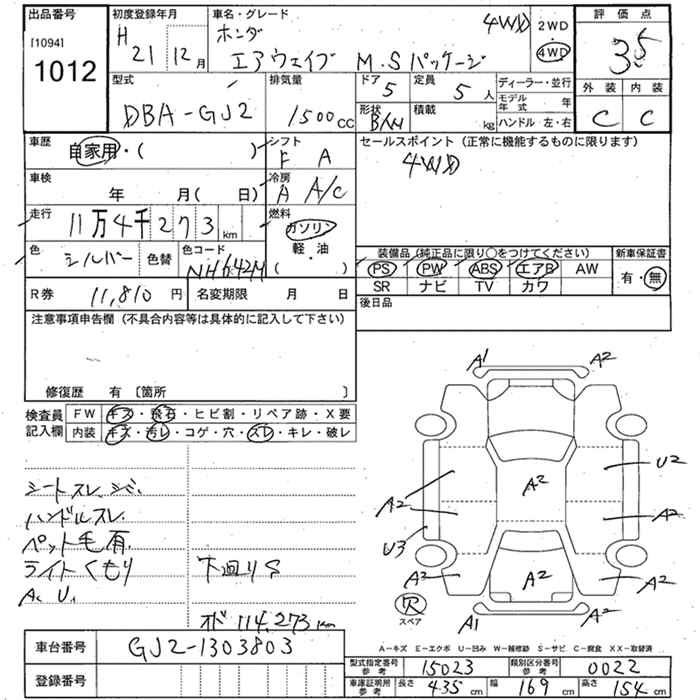 出品番号 初度登録年月 車名・グレード 評価点
[1094]
1012
H 21 12月
ホンダ 4WD
エアウェイブ M.Sパッケージ
2WD
4WD
3.5
型式 排気量 ドア 定員 ディーラー・並行 外装 内装
DBA-GJ2 1500cc 5 5人
モデル年式 年
形状 積載 kg ハンドル 左・右 C C
車歴 自家用・( ) シフト F A
セールスポイント(正常に機能するものに限ります)
4WD
車検 年 月( 日) 冷房 A A/C
走行 11万4千273km 燃料 ガソリン
軽・油
( )
色 シルバー 色替 色コード NH642M
装備品(純正品に限り○をつけてください) 新車保証書
PS PW ABS エアB AW 有・無
SR ナビ TV カワ
R券 11,810円 名変期限 月 日
後日品
注意事項申告欄(不具合内容等は具体的に記入して下さい)
修復歴 有〔箇所 〕
検査員記入欄 FW キズ・飛石・ヒビ割・リペア跡・X要
内装 キズ・汚レ・コゲ・穴・スレ・キレ・破レ
シートスレ シミ.
ハンドルスレ.
ペット毛有
ライトくもり 下廻りS
A. U.
オド114,273km
A1 A2
U2
A2
A2 A2
U3
A2 A2 A2
穴
スペア
A1 A2
A-キズ E-エクボ U-凹み W-補修跡 S-サビ C-腐食 XX-取替済
車台番号 GJ2-1303803
登録番号
型式指定番号 参考 15023 類別区分番号 参考 0022
車庫証明用 参考 長さ 435cm 幅 169cm 高さ 154cm